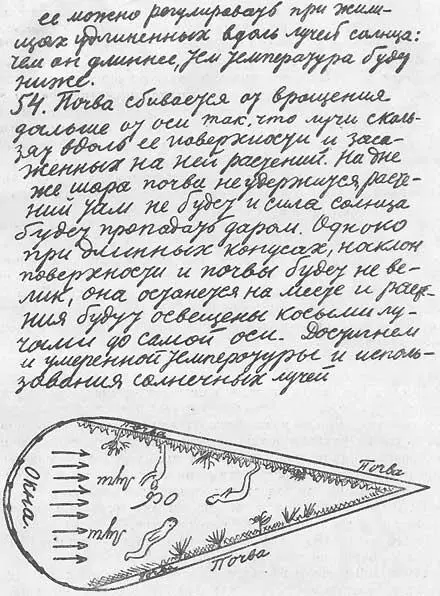 ее можно регулировать при жили-
щах удлиненных вдоль лучей солнца:
чем он длиннее, тем температура буде
ниже.
54. Почва сбивается от вращения
дальше от оси так, что лучи сколь-
зят вдоль ее поверхности и заса-
женных на ней растений. На дне
же шара почва не удержится, расте-
ний там не будет и сила солнца
будет пропадать даром. Однако
при длинных конусах, наклон
поверхности и почвы будет не ве-
лик, она останется на месте и расте-
ния будут освещены косыми лу-
чами до самой оси. Достигнем
и умеренной температуры и исполь-
зования солнечных лучей
Почва
Почва
Окна.
Лучи
Ось
Лучи
Почва
Почва